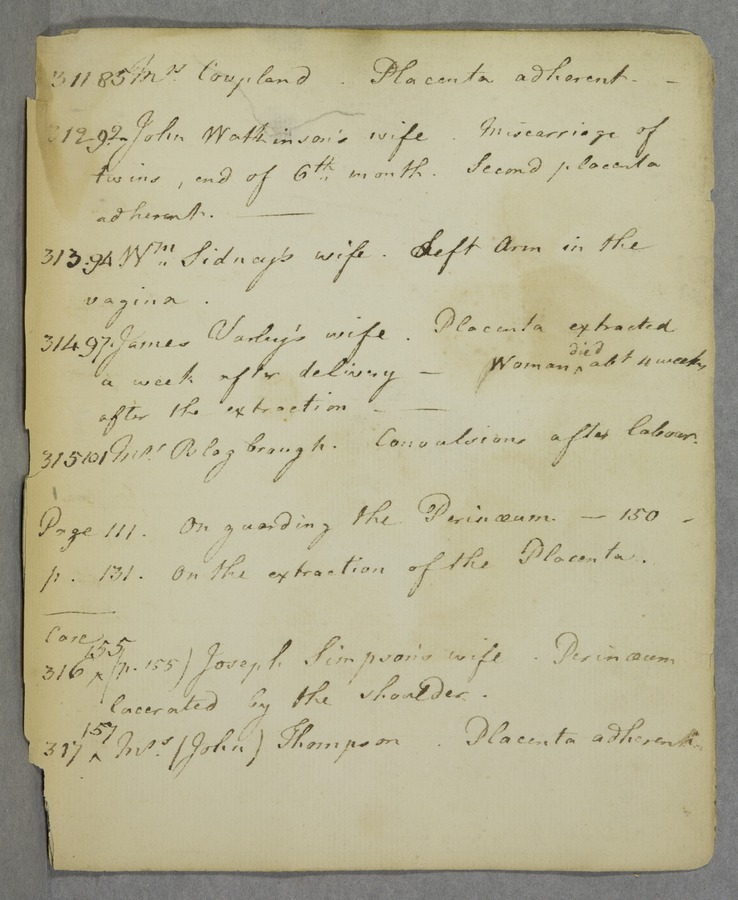 311 85 Mrs Coupland . Placenta adherent. -
312 92 John Watkinson's wife . Miscarriage of
twins, end of 6th month. Second placenta
adherent. —
313. 94 Wm Sidney's wife . Left Arm in the
vagina .
314 97. James Varley's wife . Placenta extracted
a week after delivery — Woman ^died abt 4 weeks
after the extraction - —
315 101 Mrs Blagbrough. Convulsions after labour.
Page 111. On guarding the Perinæum. — 150 -
p. 131. On the extraction of the Placenta.
Case
316 ^155 (p. 155) Joseph Simpson's wife . Perinæum
lacerated by the shoulder.
317 ^157 Mrs (John) Thompson . Placenta adherent.